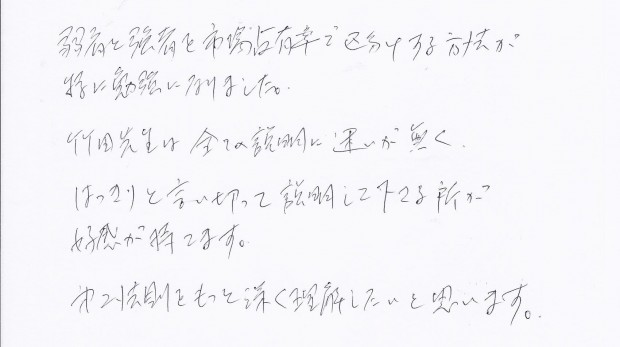 弱者と強者を市場占有率で区分けする方法が
特に勉強になりました。
竹田先生は全ての説明に迷いが無く、
はっきりと言い切って説明して下さる所が
好感が持てます。
第2法則をもっと深く理解したいと思います。